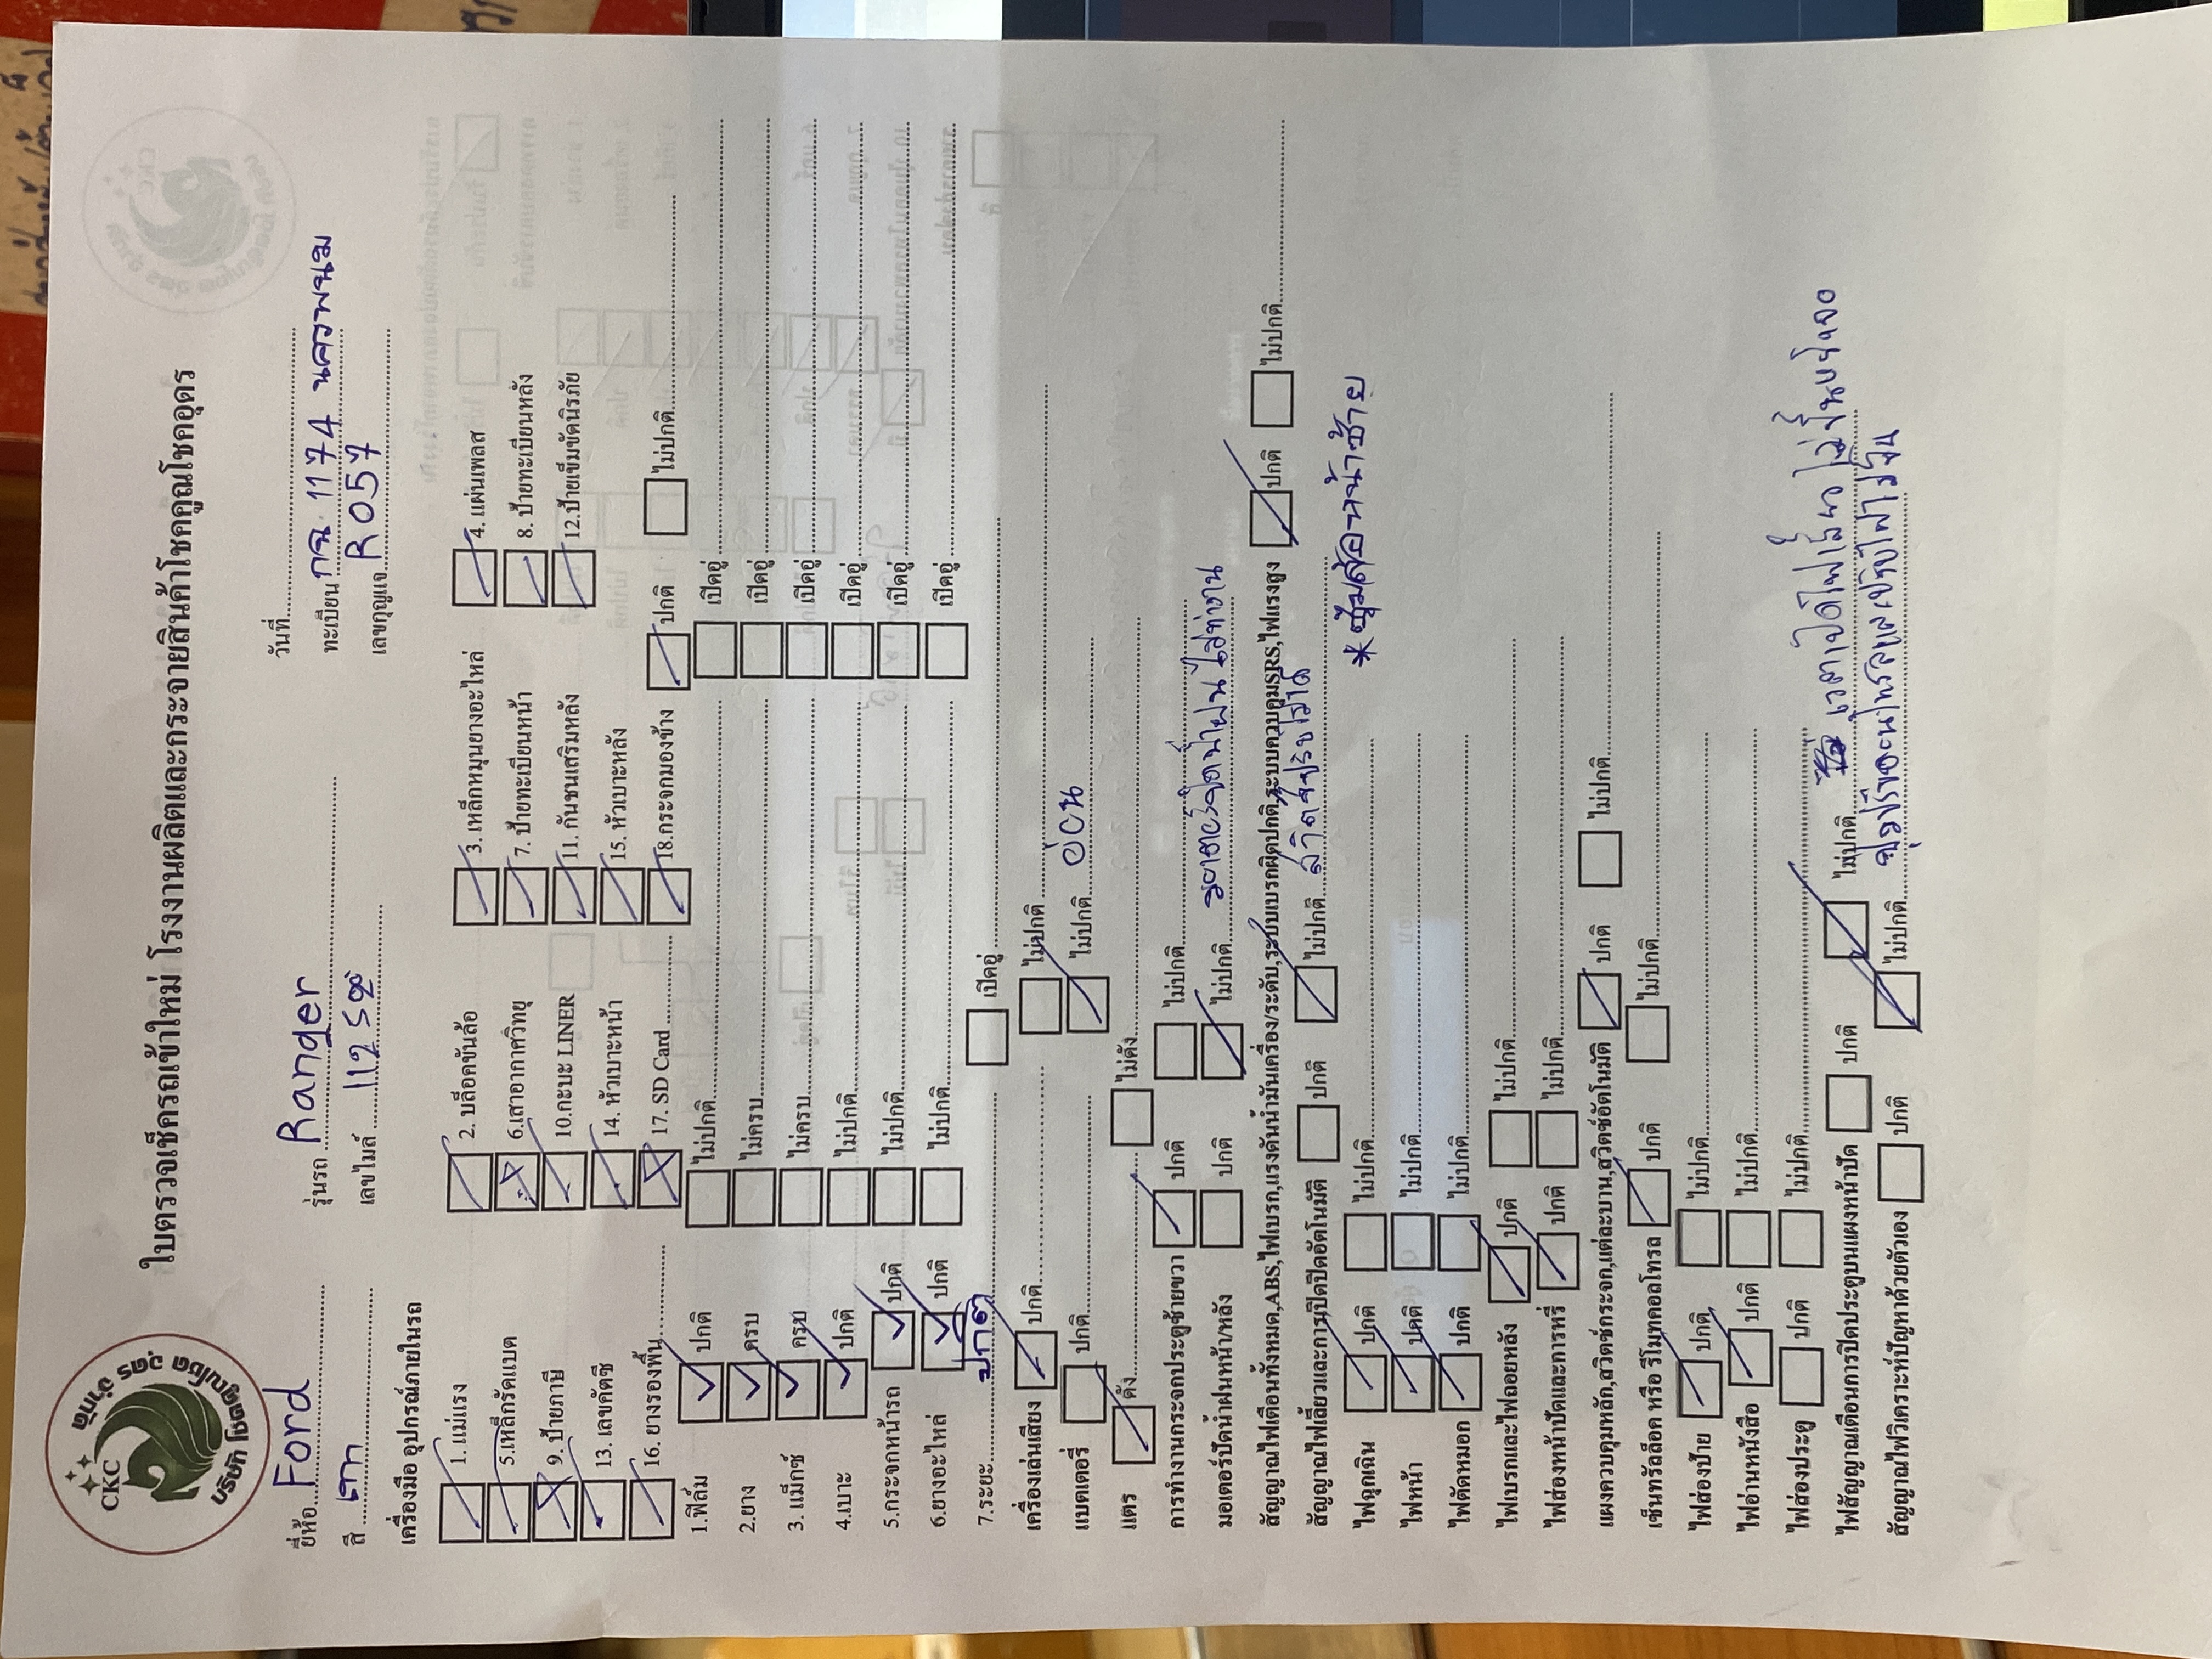 CKC
บริษัท โชคคูณโชค อุดร จำกัด
ใบตรวจเช็ครถเข้าใหม่ โรงงานผลิตและกระจายสินค้าโชคคูณโชคอุดร
วันที่
ยี่ห้อ Ford รุ่นรถ Ranger ทะเบียน กฉ 1174 นครพนม
สี เทา เลขไมล์ เลขกุญแจ R057
เครื่องมือ อุปกรณ์ภายในรถ
1. แม่แรง 2. บล็อคขันล้อ 3. เหล็กหมุนยางอะไหล่ 4. แผ่นเพลส
5.เหล็กรัดแบต 6.เสาอากาศวิทยุ 7. ป้ายทะเบียนหน้า 8. ป้ายทะเบียนหลัง
9. ป้ายภาษี 10.กะบะ LINER 11. กันชนเสริมหลัง 12.ป้ายเข็มขัดนิรภัย
13. เลขคัตซี 14. หัวเบาะหน้า 15. หัวเบาะหลัง
16. ยางรองพื้น 17. SD Card 18.กระจกมองข้าง ปกติ ไม่ปกติ
1.ฟิล์ม ปกติ ไม่ปกติ เปิดอยู่
2.ยาง ครบ ไม่ครบ เปิดอยู่
3. แม็กซ์ ครบ ไม่ครบ เปิดอยู่
4.เบาะ ปกติ ไม่ปกติ เปิดอยู่
5.กระจกหน้ารถ ปกติ ไม่ปกติ เปิดอยู่
6.ยางอะไหล่ ปกติ ไม่ปกติ เปิดอยู่
7.ระยะ ปกติ เปิดอยู่
เครื่องเล่นเสียง ปกติ ไม่ปกติ
แบตเตอรี่ ปกติ ไม่ปกติ อ่อน
แตร ดัง ไม่ดัง
การทำงานกระจกประตูซ้ายขวา ปกติ ไม่ปกติ
มอเตอร์ปัดน้ำฝนหน้า/หลัง ปกติ ไม่ปกติ มอเตอร์ฉีดน้ำฝนไม่ทำงาน
สัญญาณไฟเตือนทั้งหมด,ABS,ไฟเบรก,แรงดันน้ำมันเครื่อง/ระดับ,ระบบเบรกผิดปกติ,ระบบควบคุมSRS,ไฟแรงสูง ปกติ ไม่ปกติ
สัญญาณไฟเลี้ยวและการเปิดปิดอัตโนมัติ ปกติ ไม่ปกติ
ไฟฉุกเฉิน ปกติ ไม่ปกติ *ซุ้มล้อหน้าซ้าย
ไฟหน้า ปกติ ไม่ปกติ
ไฟตัดหมอก ปกติ ไม่ปกติ
ไฟเบรกและไฟถอยหลัง ปกติ ไม่ปกติ
ไฟส่องหน้าปัดและการหรี่ ปกติ ไม่ปกติ
แผงควบคุมหลัก,สวิตช์กระจก,แต่ละบาน,สวิตช์อัตโนมัติ ปกติ ไม่ปกติ
เซ็นทรัลล็อค หรือ รีโมทคอลโทรล ปกติ ไม่ปกติ
ไฟส่องป้าย ปกติ ไม่ปกติ
ไฟอ่านหนังสือ ปกติ ไม่ปกติ
ไฟส่องประตู ปกติ ไม่ปกติ
ไฟสัญญาณเตือนการปิดประตูบนแผงหน้าปัด ปกติ ไม่ปกติ เวลาเปิดไฟเลี้ยว ไม่ขึ้นบนจอ
สัญญาณไฟวิเคราะห์ปัญหาด้วยตัวเอง ปกติ ไม่ปกติ